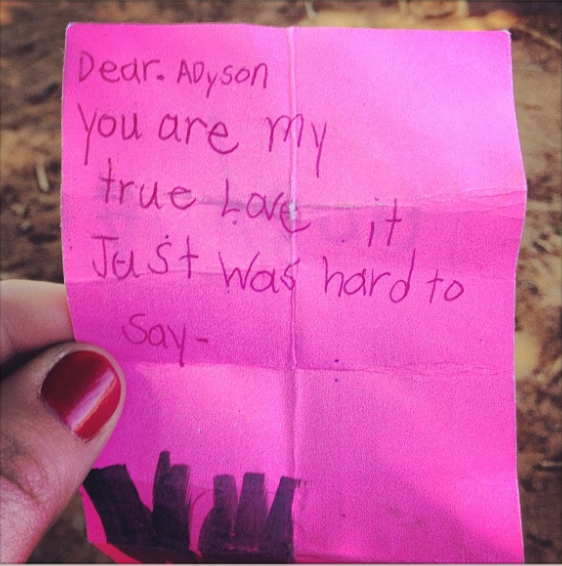 Dear. ADyson
You are my
true Love it
Just was hard to
say-